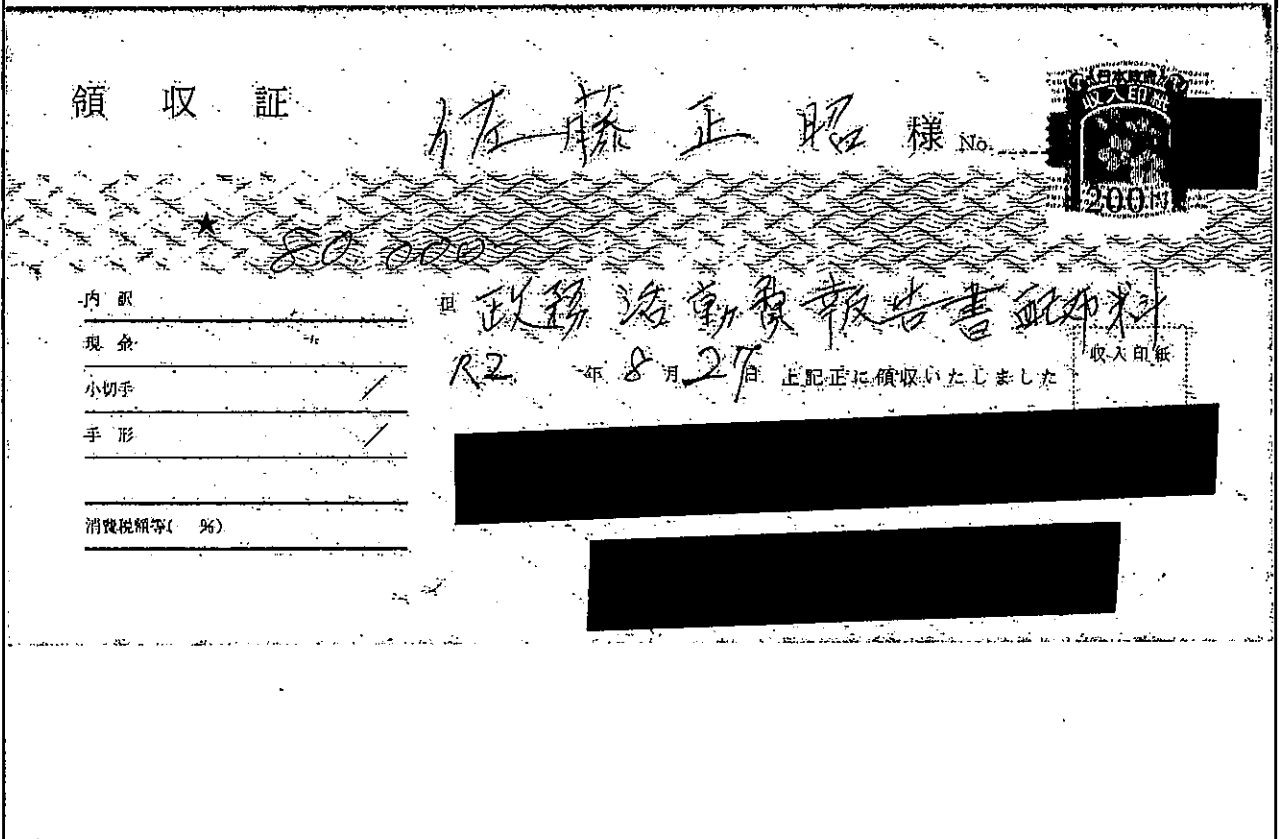 領収証 佐藤正昭 様 No.
日本政府
収入印紙
200円
★ 80,000
内訳
現金
小切手
手形
消費税額等( %)
但 政務活動費報告書配布料
R2 年 8 月 27 日 上記正に領収いたしました
収入印紙